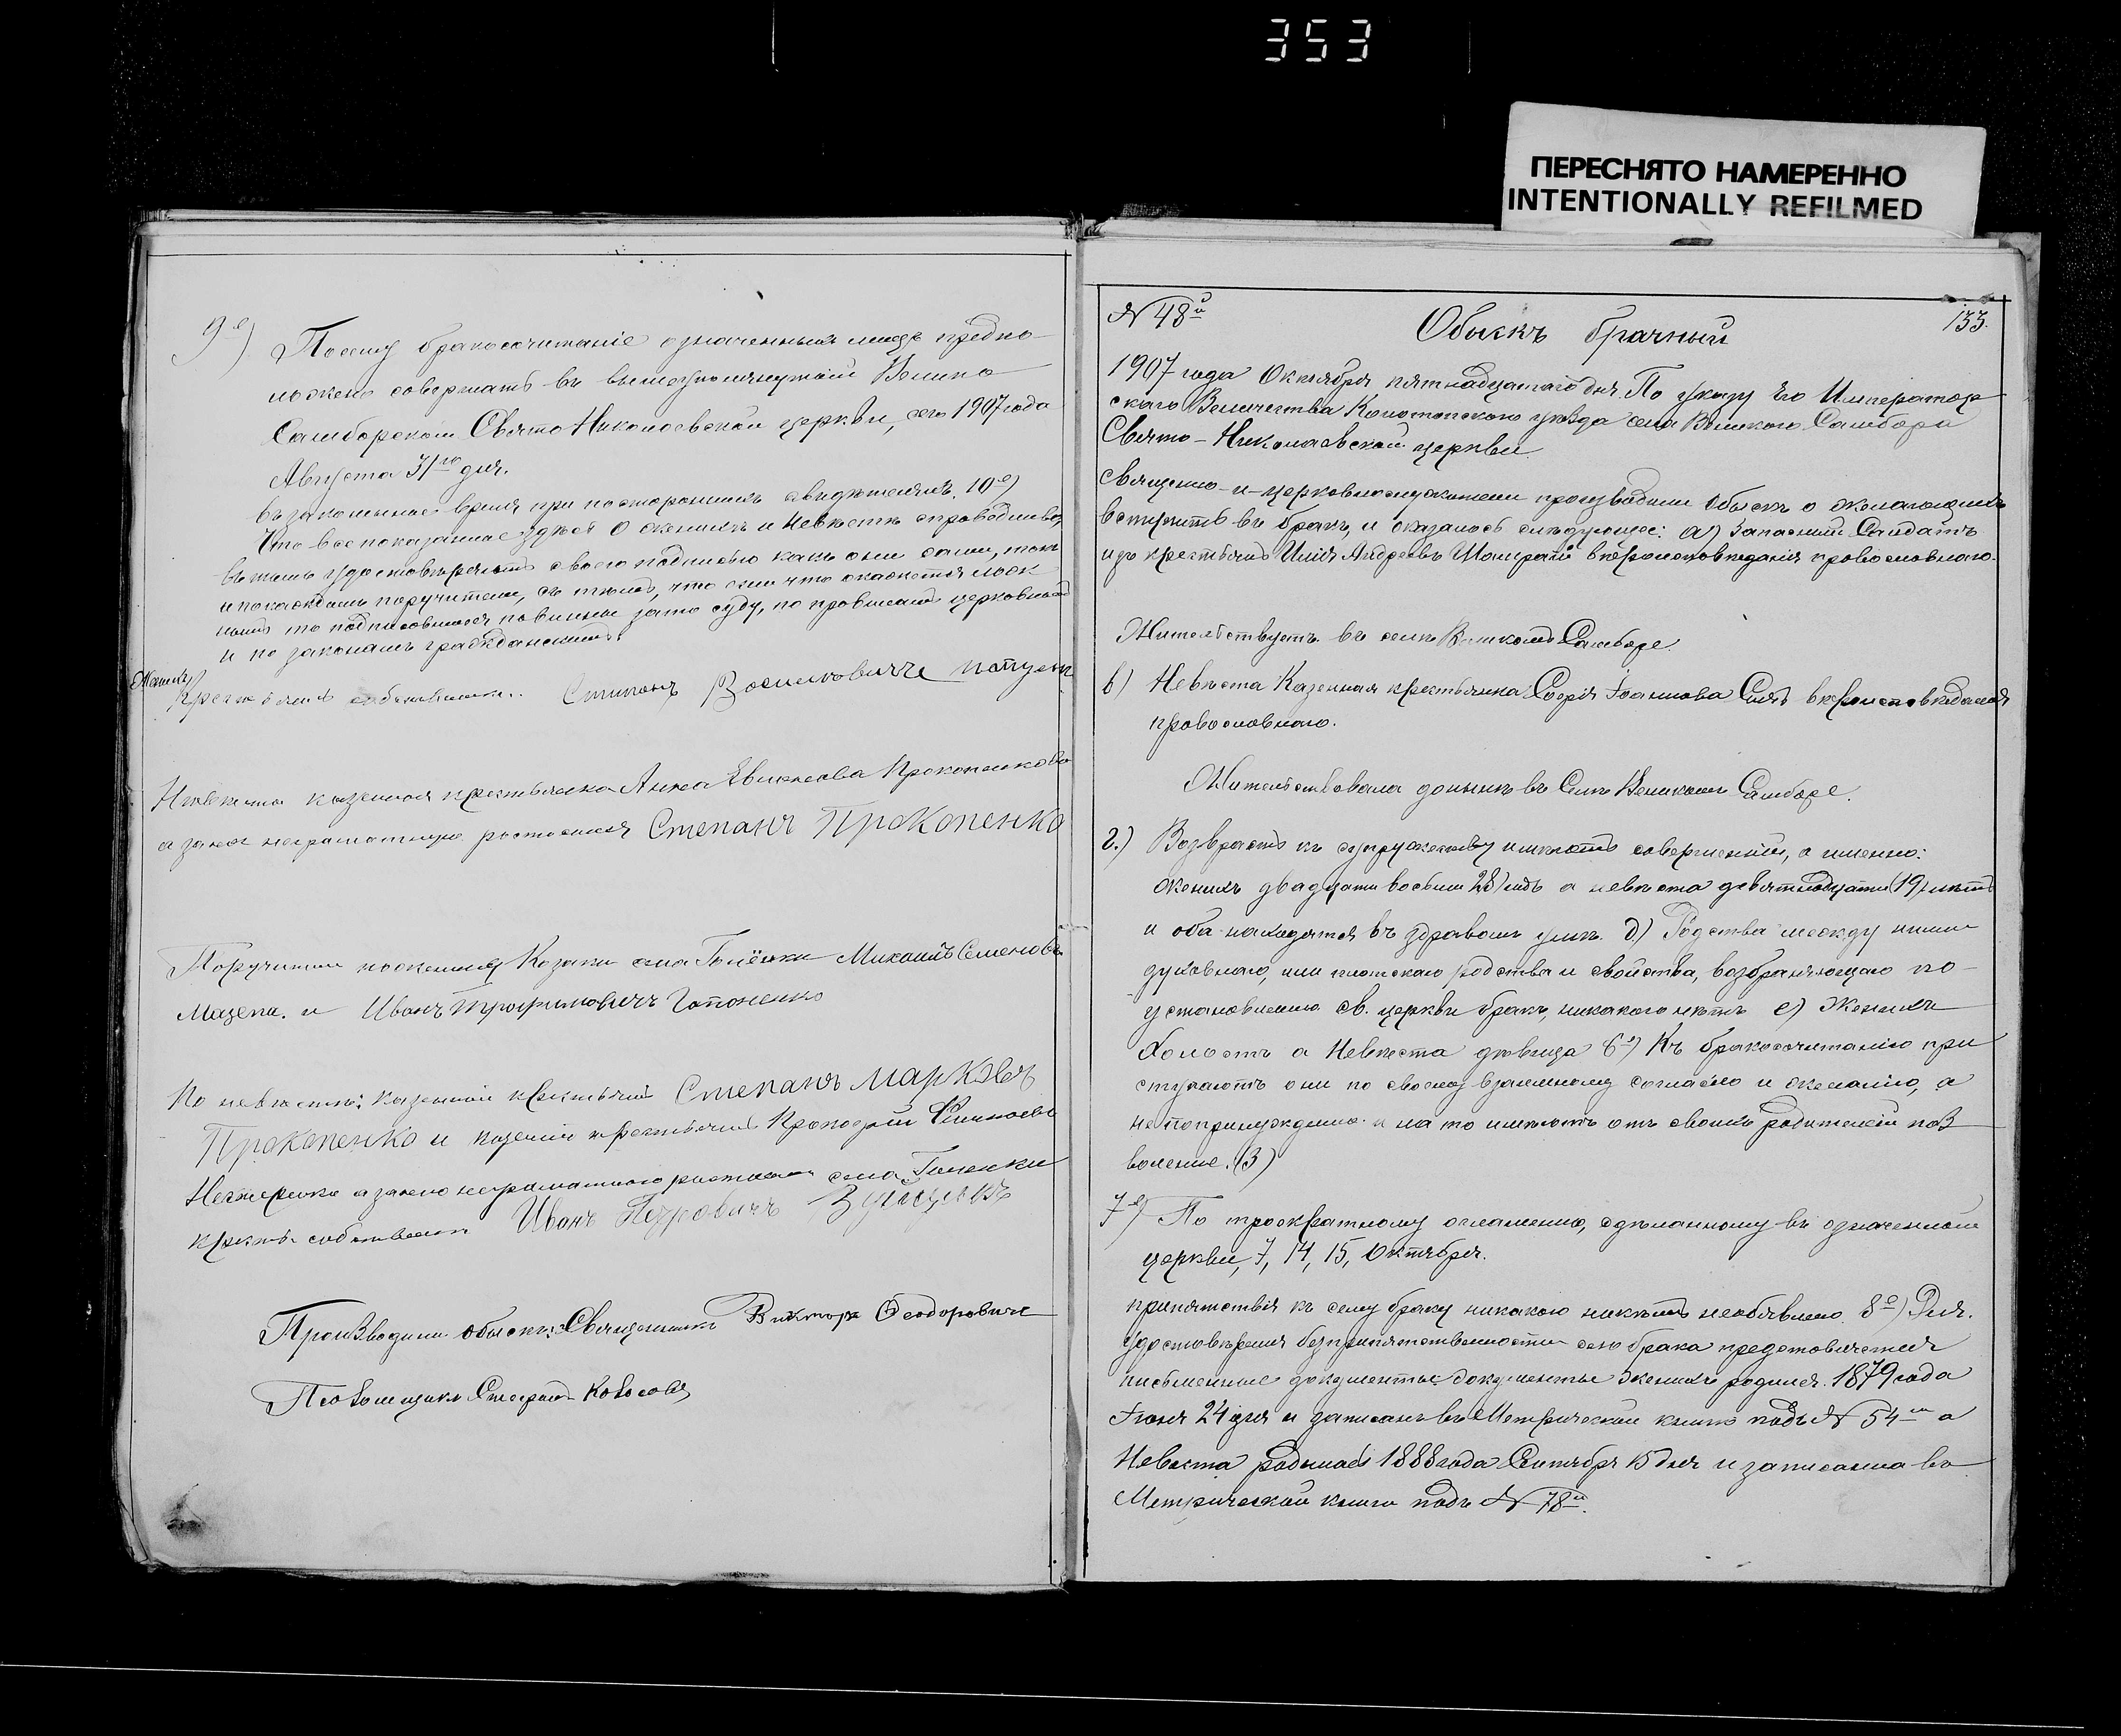 353
ПЕРЕСНЯТО НАМЕРЕННО
INTENTIONALLY REFILMED
9е) Посему бракосочетаніе означенныхъ лицъ предпо-
ложено совершать въ вышеупомянутой Велико
Самборской Свято Николаевской церкви, сего 1907 года
Августа 31го дня.
въ законыное время при постороннихъ свидѣтеляхъ. 10е)
Что все показанное здѣсь о женихѣ и невѣстѣ справедливо,
въ томъ удостовѣряютъ своею подписью какъ они сами, такъ
и по каждомъ поручители, съ тѣмъ, что если что окажется лож
нымъ то подписавшіеся повинны за то суду, по правиламъ церковнымъ
и по законамъ гражданскимъ.
Женихъ
Степанъ
Невѣста казенная крестьянка Анна Прокопенкова
а за нея неграмотную росписался Степанъ Прокопенко
Поручители по женихѣ Козаки села Михаилъ Семеновъ
Мазепа. и Иванъ Трофимовичъ Гапоненко
По невѣстѣ: казенный крестьянинъ Степанъ Марковъ
Прокопенко и казенный крестьянинъ Прокофій
а за него неграмотного росписался села
Иванъ Петровичъ
Производили обыскъ: Священникъ Викторъ Ѳеодоровичъ
Псаломщикъ Стефанъ
№ 48й
133.
Обыскъ брачный
1907 года Октября пятнадцатаго дня. По указу Его Император
скаго Величества Конотопскаго уѣзда села Великого Самбора
Свято-Николаевской церкви.
Священно-и-церковнослужители производили обыскъ о желающихъ
вступить въ бракъ, и оказалось слѣдующее: а) Запасный Солдатъ
изъ крестьянъ Илія Андреевъ вѣроисповѣданія православнаго.
Жительствуетъ въ селѣ Великомъ Самборѣ
в) Невѣста Казенная крестьянка Софія Іоаннова вѣроисповѣданія
православнаго.
Жительствовала донынѣ въ Селѣ Великомъ Самборѣ.
г.) Возврастъ къ супружеству имѣютъ совершенный, а именно:
женихъ двадцати восьми 28) лѣтъ а невѣста девятнадцати (19) лѣтъ
и оба находятся въ здравомъ умѣ. д.) Родства между ними
духовнаго, или плотскаго родства и свойства, возбраняющаго по-
установленію св. церкви бракъ, никакого нѣтъ е) Женихъ
Холостъ а Невѣста дѣвица 6е) Къ бракосочетанію при
ступаютъ они по своему взаимному согласію и желанію, а
не по принужденію. и на то имѣютъ отъ своихъ родителей поз
воленіе. (3)
7е) По троекратному оглашенію, сдѣланному въ означенной
церкви, 7, 14, 15, Октября.
препятствія къ сему браку никакого никѣмъ необявлено. 8е) Для.
удостовѣренія безпрепятственности сего брака предстовляются
письменные документы: документы Женихъ родился. 1879 года
Іюня 24 дня и записанъ въ Метрической книгѣ подъ № 54мъ а
Невѣста родилась 1888 года Сентября 15 дня и записанна во
Метрической книги подъ № 78й.